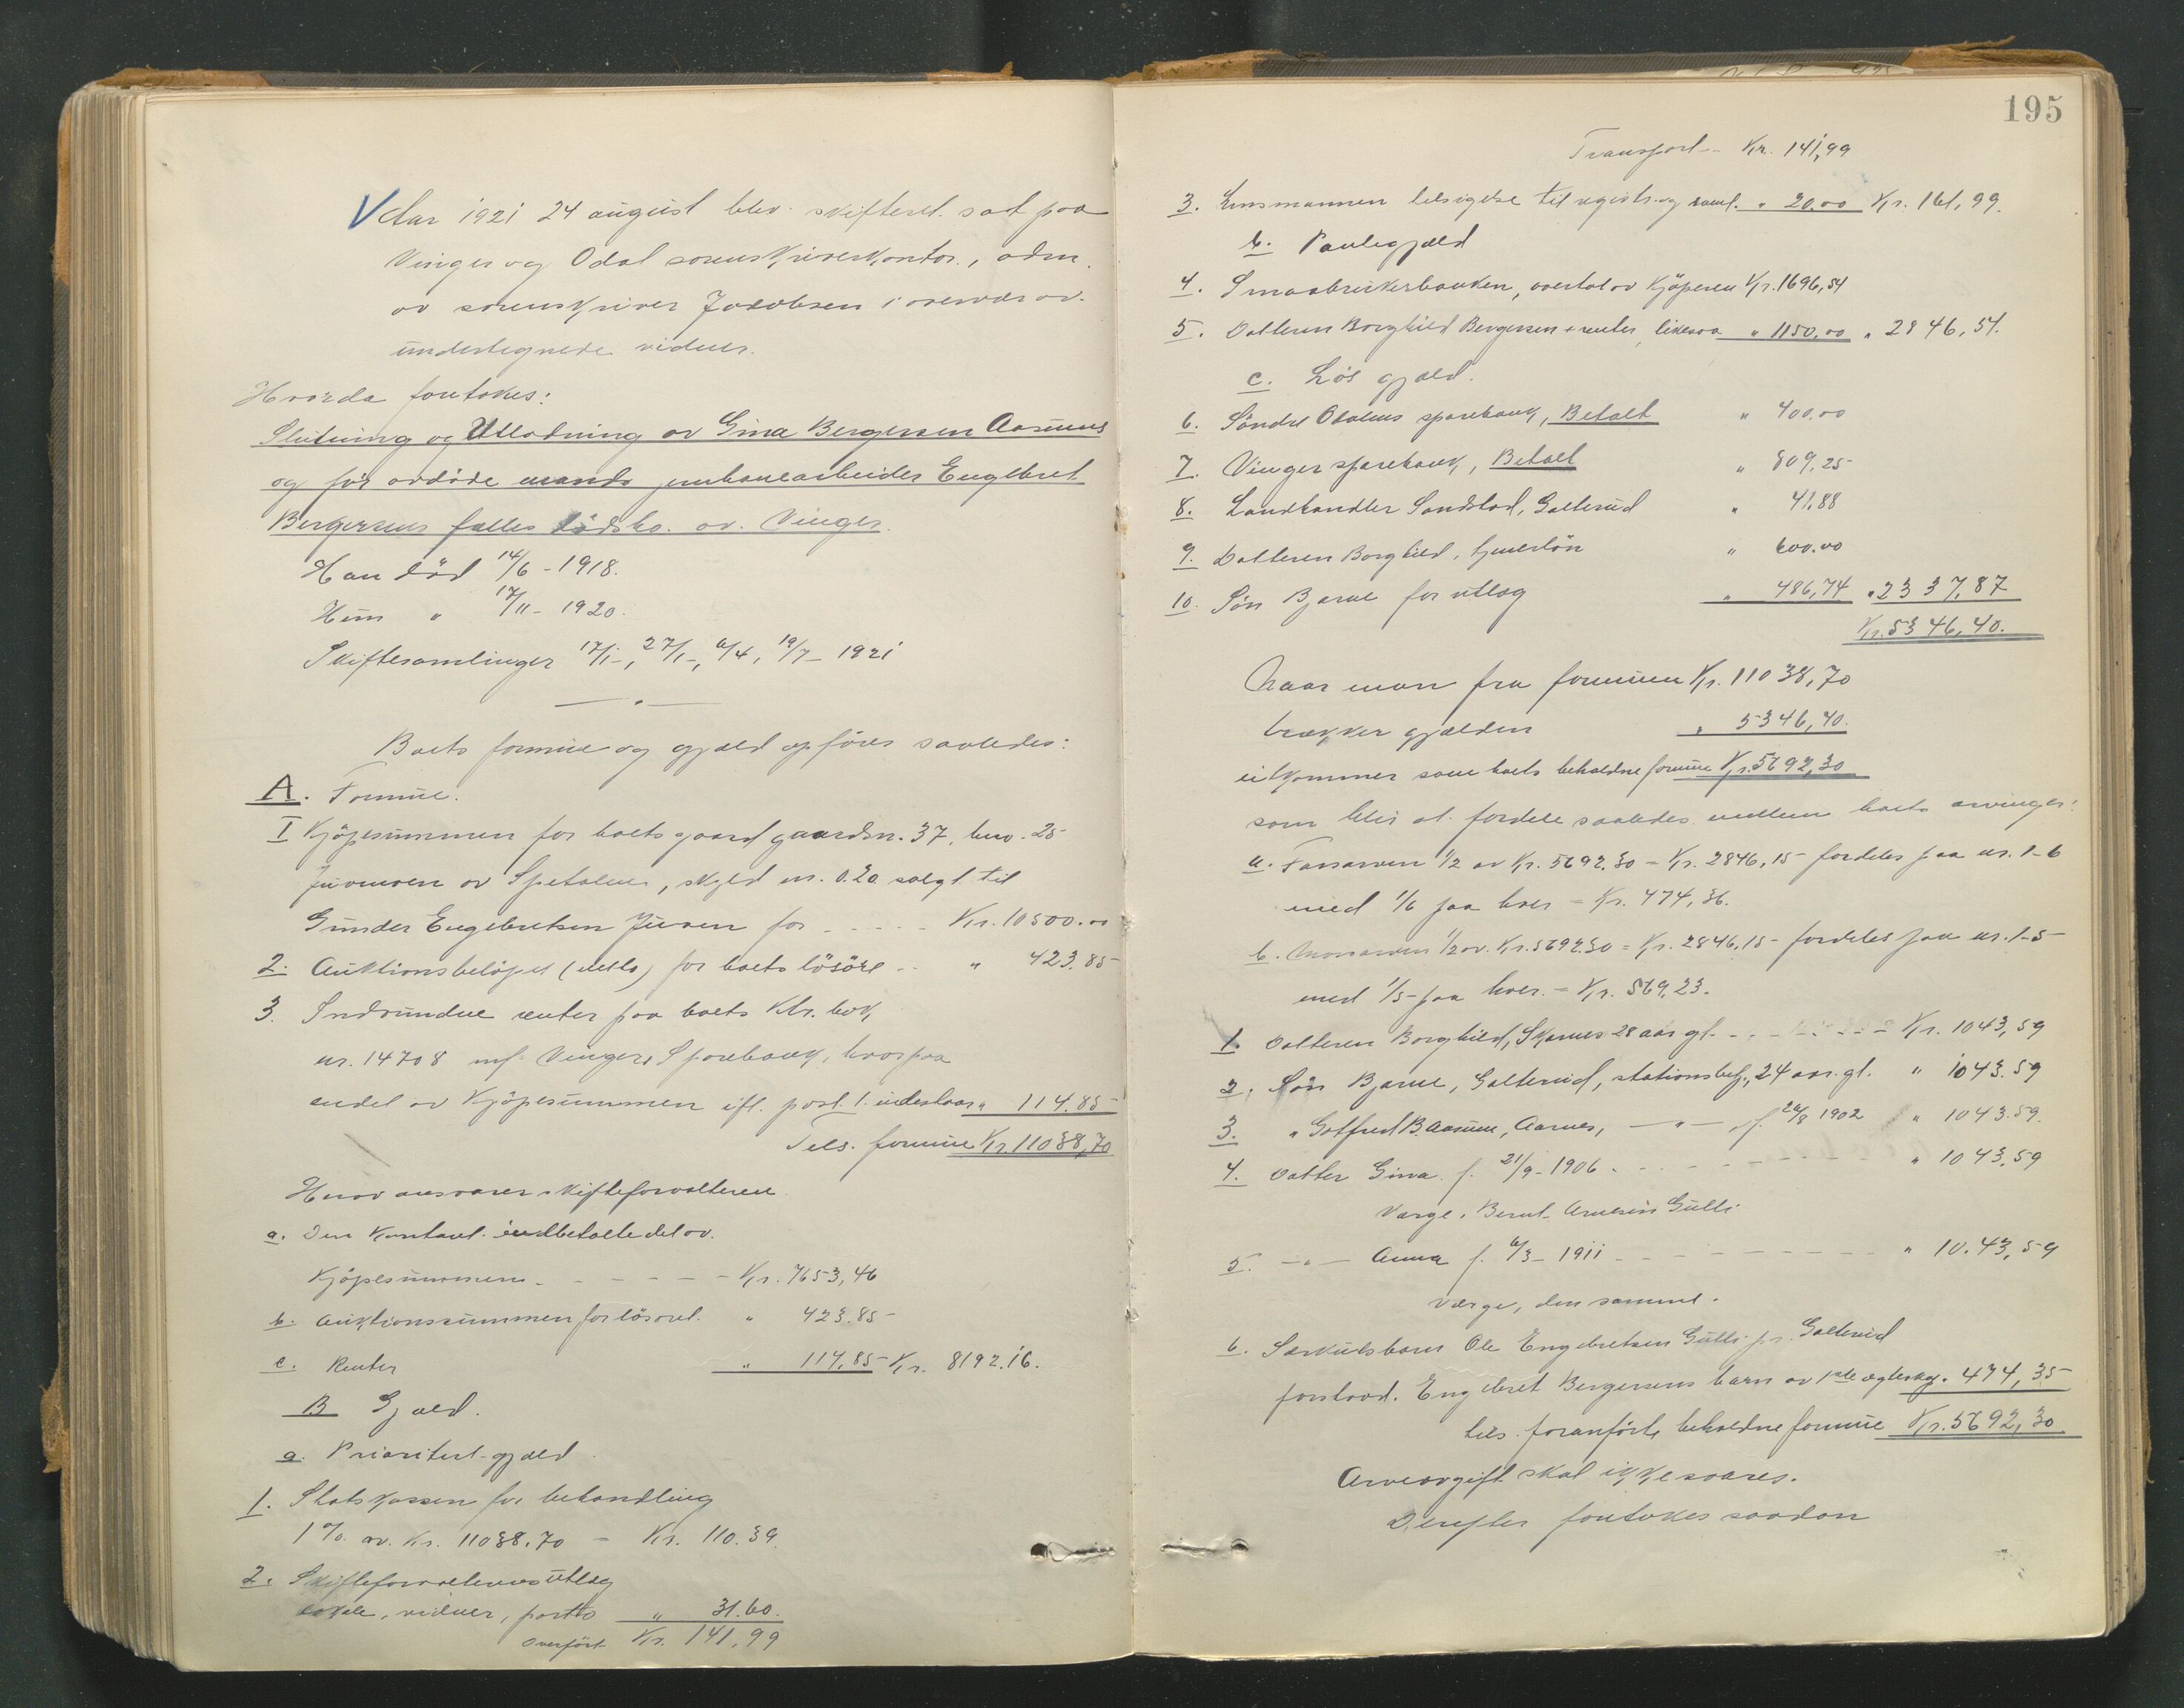 Aar 1921 24 august blev skifteret sat paa
Vinger og Odal sorenskriverkontor, adm.
av sorenskriver Jakobsen i overvær av
undertegnede vidner.
Hvorda foretokes:
Slutning og Utlodning av Gina Bergersen Aasums
og før avdøde mands jernbanearbeider Engebret
Bergersens fælles dødsbo av Vinger.
Han død 14/6 - 1918.
Hun " 17/11 - 1920.
Skiftesamlinger 17/1-, 27/1-, 6/4, 19/7 - 1921
Boets formue og gjæld opføres saaledes:
A. Formue.
I Kjøpesummen for boets gaard gaardsn. 37, bno. 25
Juvmoen av Spetalen, skyld m. 0.20 solgt til
Gunder Engebretsen Juven for - - - - - Kr. 10500.00
2. Auktionsbeløpet (netto) for boets løsøre - - " 423.85
3. Indvundne renter paa boets ktr. bok
nr. 14708 mf. Vinger Sparebank, hvorpaa
endel av kjøpesummen ifl. post 1. indestaar " 114.85
Tils. formue Kr. 11038,70
Herav ansvarer skifteforvalteren
a. Den kontant indbetalte del av
kjøpesummen - - - - - - Kr. 7653,46
b. Auktionssummen for løsøret " 423.85
c. Renter " 114,85 Kr. 8192.16.
B Gjæld.
a. Prioritert gjæld
1. Statskassen for behandling
1 % av Kr. 11038.70 - Kr. 110.39
2. Skifteforvalterens utlæg
lokale, vidner, porto " 31.60.
Overført Kr. 141,99
195
Transport - - Kr. 141,99
3. Lensmannen tilsigelse til registr. og saml. " 20.00 Kr. 161,99.
b. Pantegjæld
4. Smaabrukerbanken, overtat av kjøperen Kr. 1696,54
5. Datteren Borghild Bergersen + renter, likesaa " 1150.00 " 2846,54.
c. Løs gjæld.
6. Søndre Odalens sparebank, Betalt " 400.00
7. Vinger sparebank, Betalt " 809,25
8. Landhandler Sandstad, Galterud " 41.88
9. Datteren Borghild, tjenerløn " 600.00
10. Søn Bjarne for utlæg " 486,74 " 2337,87
Kr. 5346,40.
Naar man fra formuen Kr. 11038,70
trækker gjælden " 5346,40.
utkommer som boets beholdne formue Kr. 5692,30
som blir at fordele saaledes mellem boets arvinger:
a. Farsarven 1/2 av Kr. 5692.30 = Kr. 2846,15 fordeles paa nr. 1-6
med 1/6 paa hver = Kr. 474,36.
b. Morsarven 1/2 av Kr. 5692.30 = Kr. 2846,15 fordeles paa nr. 1-5
med 1/5 paa hver = Kr. 569,23.
1. Datteren Borghild, Skarnes 28 aar gl. - - - - - - - Kr. 1043,59
2. Søn Bjarne, Galterud, stationsbetj., 24 aar. gl. " 1043.59
3. " Gotfred B. Aasum, Aarnes, - " - , f. 26/8 1902 " 1043.59.
4. Datter Gina f. 21/9 - 1906 - - - - - - - " 1043,59
Værge, Bernt Arnesen Gulli
5. - " - Anna f. 6/3 - 1911 - - - - - - - " 10.43,59
Værge, den samme.
6. Særkulsbarn Ole Engebretsen Gulli pr. Galterud
forstaad. Engebret Bergersens barn av 1ste ægteskap. 474,35
tils. foranførte beholdne formue Kr. 5692,30
Arveavgift skal ikke svares.
Derefter foretokes saadan